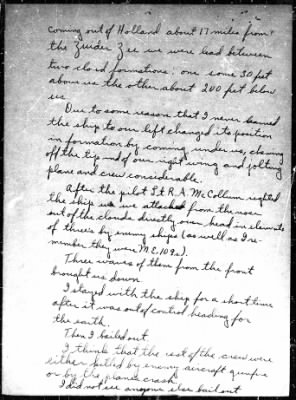 coming out of Holland about 17 miles from
the Zuider Zee we were lead between
two cloud formations; one some 50 feet
above us the other about 200 feet below
us.
Due to some reason that I never learned
the ship to our left changed its position
in formation by coming under us, clipping
off the tip end of our right wing and jolting
plane and crew considerable.
After the pilot Lt R.A. McCollum righted
the ship we were attacked from the nose
out of the clouds directly over head in elements
of three's by enemy ships (as well as I re-
member they were M.E. 109s).
Three waves of them from the front
brought us down
I stayed with the ship for a short time
after it was out of control heading for
the earth.
Then I bailed out.
I think that the rest of the crew were
either killed by enemy aircraft gunfire
or by the planes crash
I did not see anyone else bail out